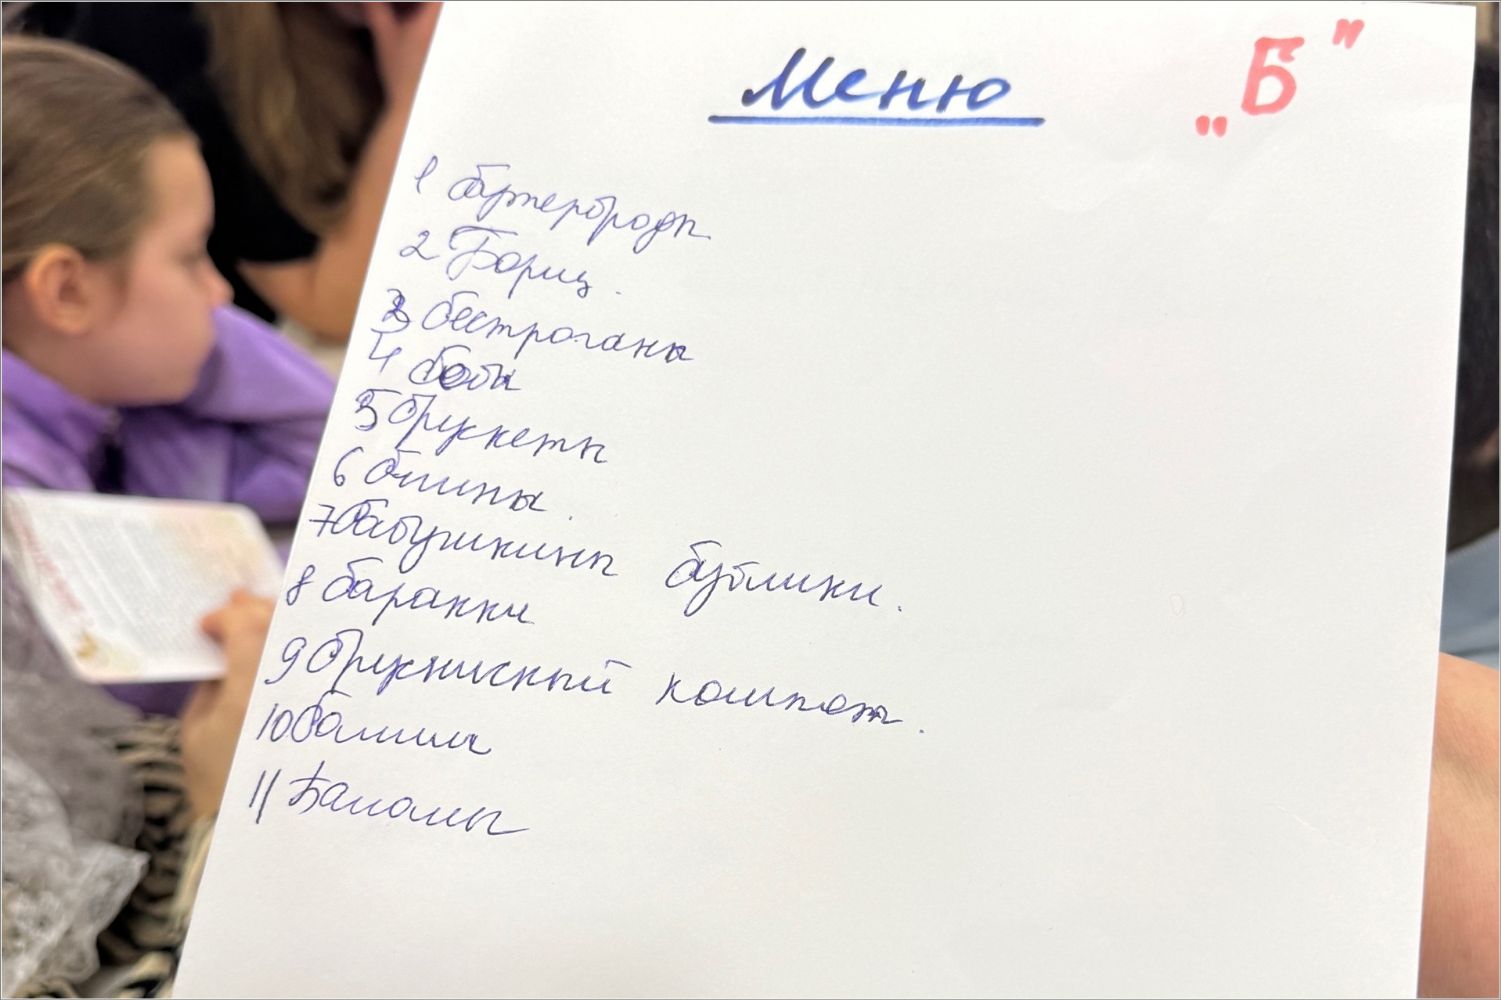 Меню
„Б"
1 бутерброды
2 Борщ.
3 бестроганы
4 бобы
5 брускеты
6 блины.
7 бабушкины бублики.
8 баранки
9 брусничный компот.
10 балыш
11 Бананы